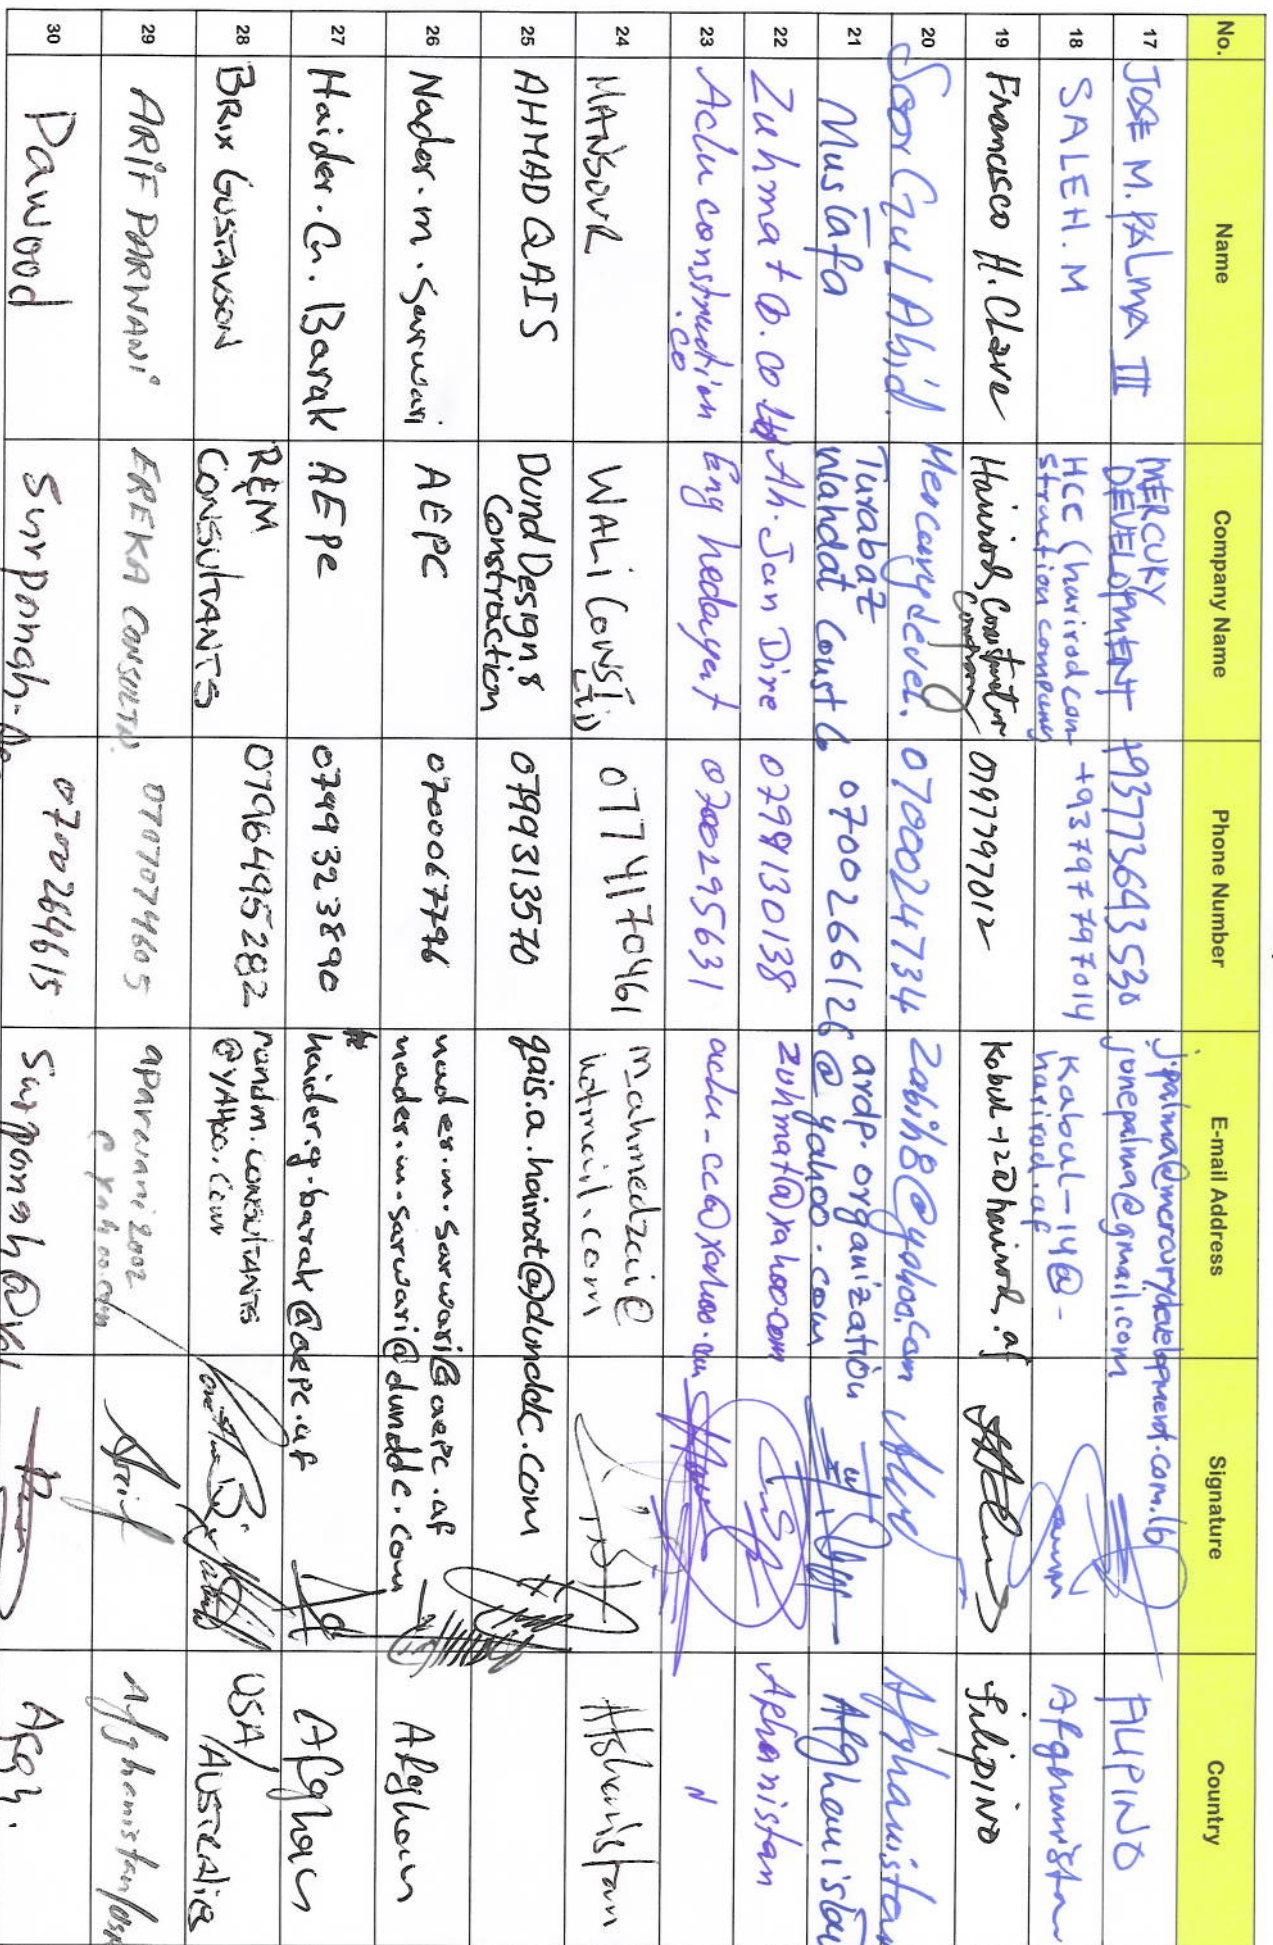 No. Name Company Name Phone Number E-mail Address Signature Country
17 JOSE M. PALMA III MERCURY DEVELOPMENT +937773643530 j.palma@mercurydevelopment.com.lb
jonepalma@gmail.com FILIPINO
18 SALEH.M HCC (harirod con-
struction company +93797797014 Kabul-14@-
harirod.af Afghanistan
19 Francisco H. Clave Harirod Construction
Company 0797797012 Kabul-12@harirod.af Filipino
20 Abid 0700024734 Zabih8@yahoo.com Afghanistan
21 Mustafa Turabaz
wahdat Const Co 0700266126 ardp.organization
@yahoo.com Afghanistan
22 Zuhmat b.co ltd Ah.Jan Dire 0799130138 zuhmat1@yahoo.com Afhanistan
23 Aclu construction
.co Eng hedayat 0700295631 aclu-cc@yahoo.com
24 MANSOUR WALi CONST
LTD 0774170461 m_ahmedzai@
hotmail.com Afghanistan
25 AHMAD QAIS Dund Design &
Constraction 0799313570 qais.a.hairat@dunddc.com
26 Nader.m.Sarwari AEPC 0700067796 nader.m.sarwari@aepc.af
nader.m.sarwari@dunddc.com Afghan
27 Haider.Gh.Barak AEPC 0749323890 haider.g.barak@aepc.af Afghan
28 BRIX GUSTAVSON R&M
CONSULTANTS 0796495282 randm.consultants
@yahoo.com USA/
AUSTRALIA
29 ARIF PARWANI EREKA CONSULTN 0707074605 aparwani2002
@yahoo.com Arif Afghanistan/USA
30 Dawood Surpanah- 0700264615 Surpanah@ Afgh.